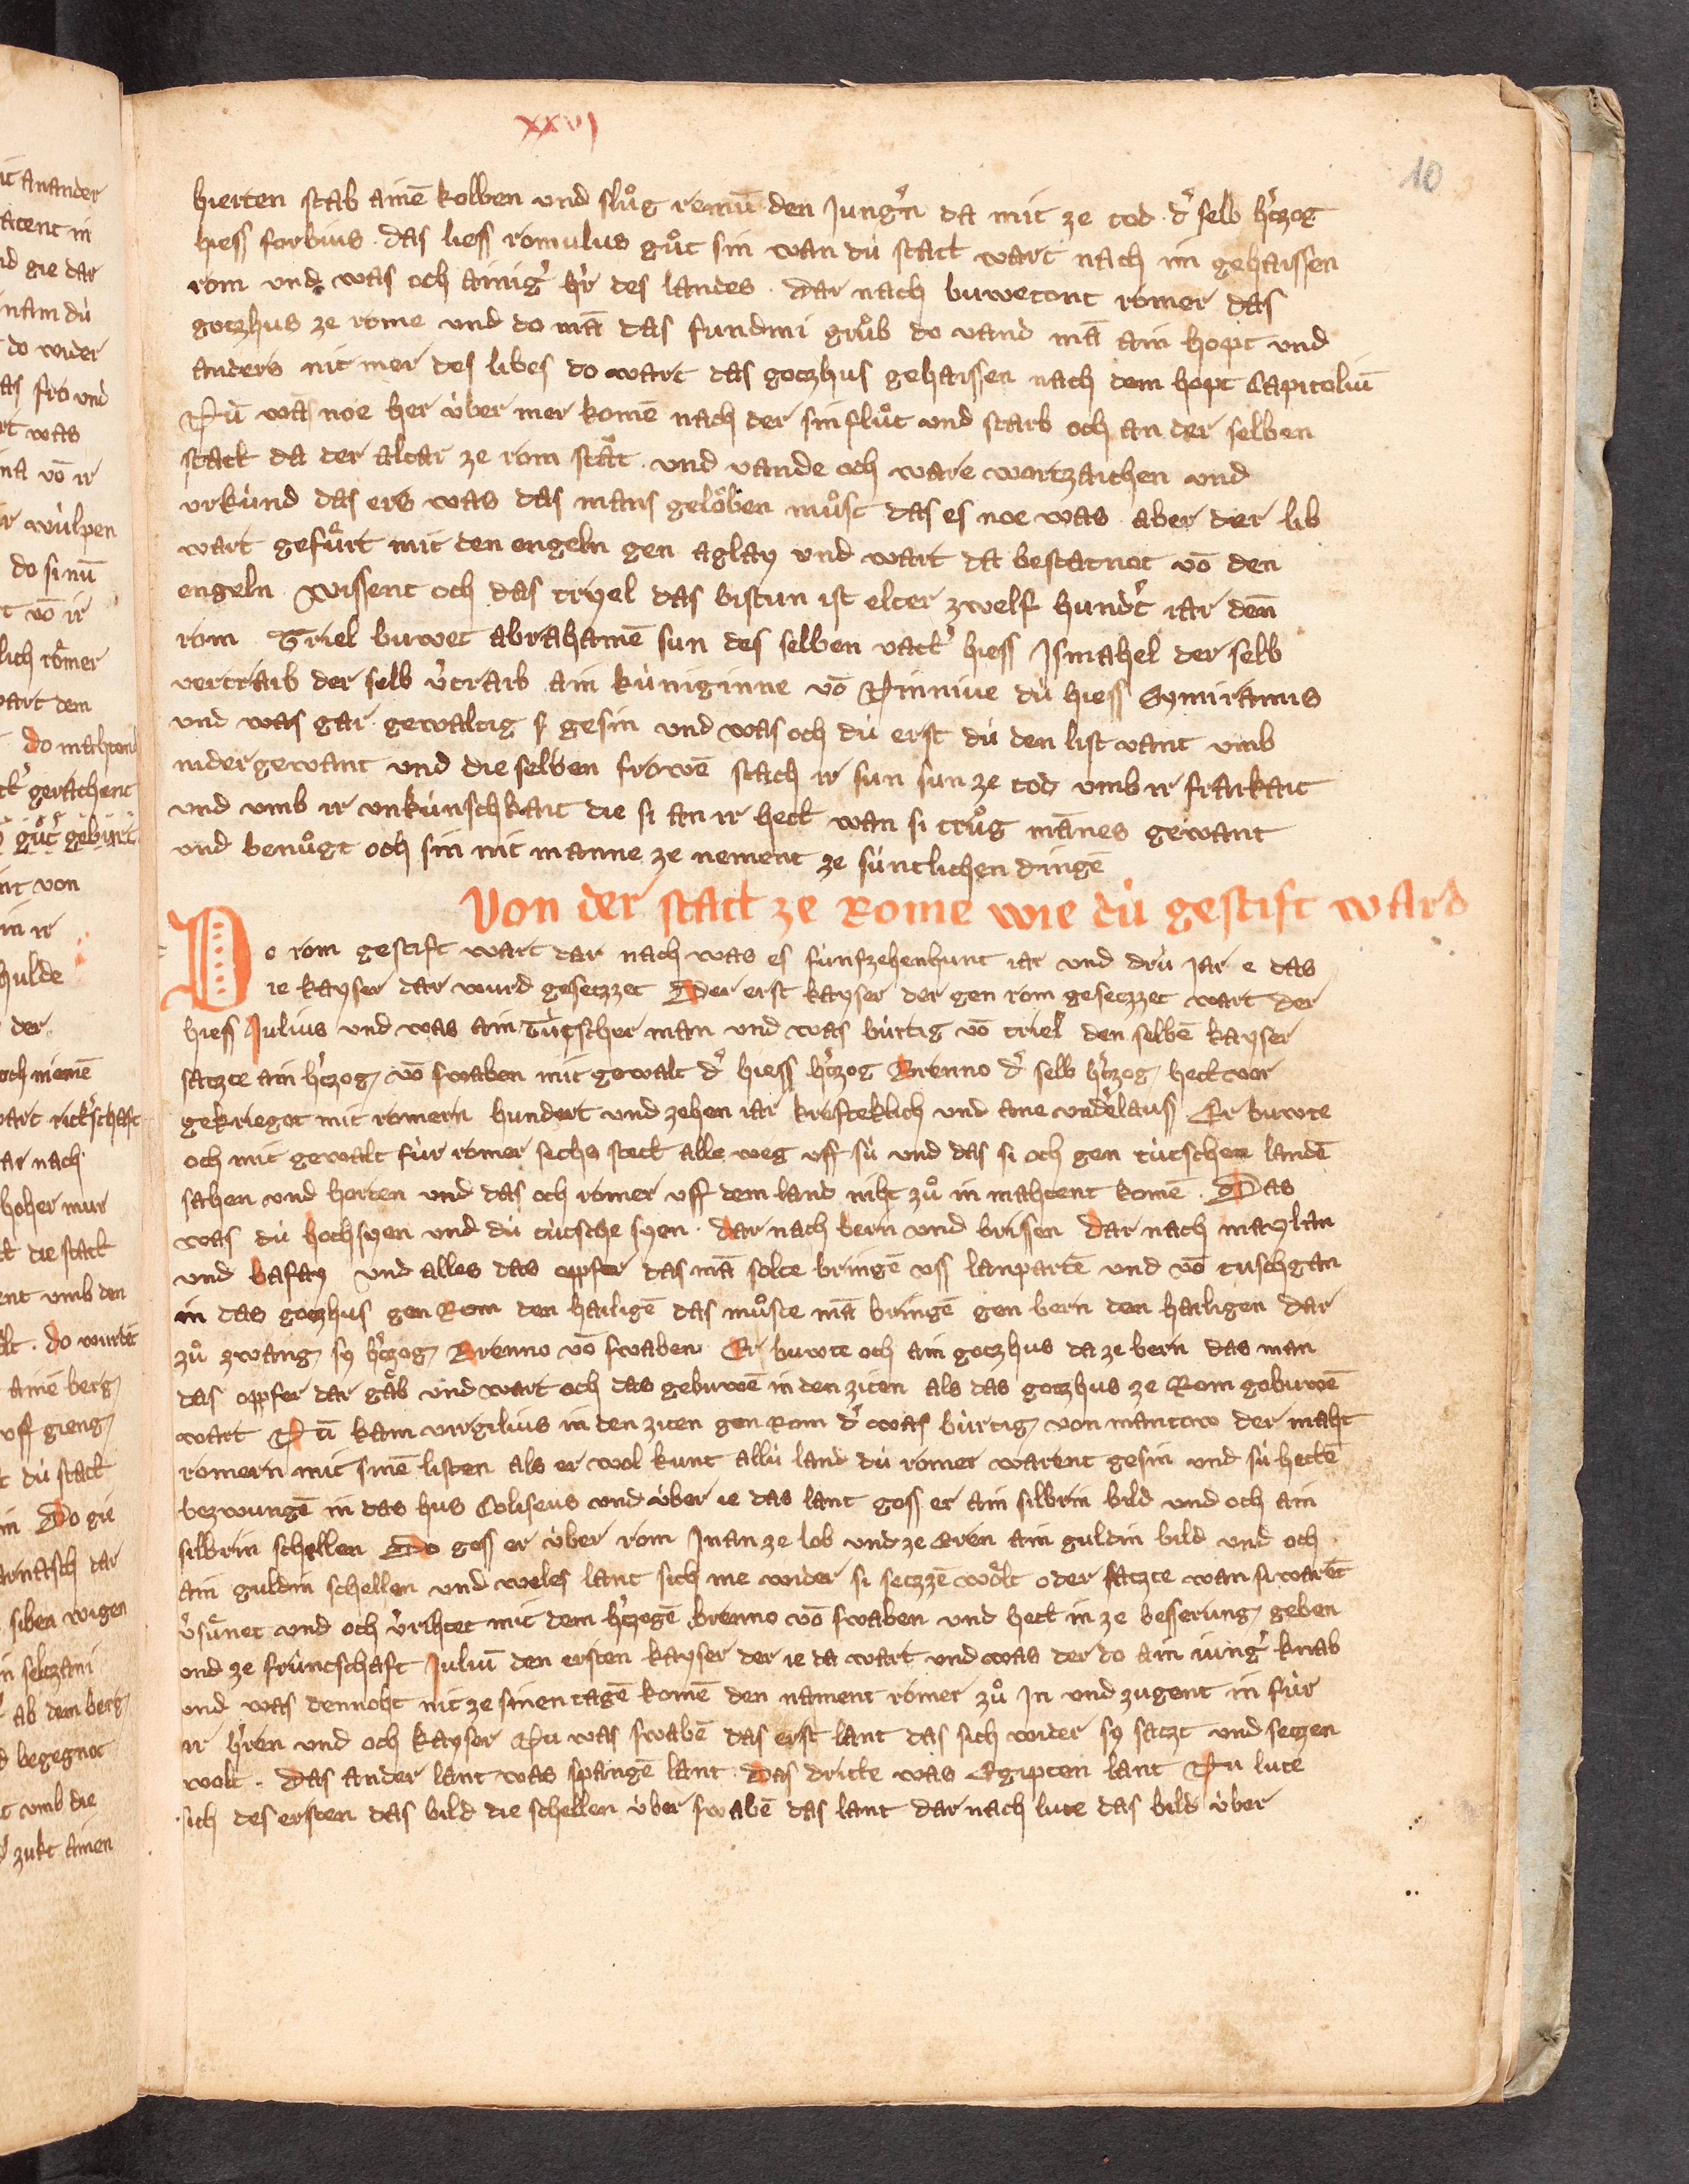 xxvj
10
hierten stab ainē kolben und slůg remū den Jungˀn da mit ze tod · dˀ selb hˀczog
hiess forbius · das liess romulus gůt sin wan dü statt wart nach im gehaissen
rom und was och ainigˀ hˀr des landes · dar nach buwetont römer das
goczhus ze rome und do mā das fundmi grůb do vand mā ain hopt und
anders nit mer des libes do wart das goczhus gehaissen nach dem hopt Capitoliū
Nū was noe her über mer komē nach der sinflůt und starb och an der selben
statt da der altar ze rom stāt · und vande och ware wortzaichen und
urkünd das ers was das mans gelöben můst das es noe was · aber der lib
wart gefürt mit den engeln gen aglay und wart da bestatnot vō den
engeln · Wissent och das tryel das bistun ist elter zwelf hundˀt iar denn
rom · Triel buwet abrahamē sun des selben vattˀ hiess Jsmahel der selb
vertraib der selb vˀtraib ain küniginne vō Ninnive dü hiess Symiramis
und was gar gewaltig gesin und was och dü erst dü den list vant umb
nidergewant und die selben frowē stach ir sun sun ze tod umb ir frarkait
und umb ir unkünschkait die si an ir hett wan si trůg mānes gewant
und benůgt och sin nit manne ze nement ze süntlichen dingē
Von der statt ze Rome wie dü gestift ward
Do rom gestift wart dar nach was es fünfzehenhunt iar und drü jar e das
ie kayser dar wurd gesetzzet Der erst kayser der gen rom gesetzzet wart der
hiess Julius und was ain Tütscher man und was bürtig vō triel den selbē kayser
saczte ain hˀczog vō swaben mit gewalt dˀ hiess hˀczog Brenno dˀ selb hˀczog hett vor
gekrieget mit römern hundert und zehen iar krefteklich und ane undˀlauss Er buwte
och mit gewalt für römer sechs stett alle weg uff sü und das si och gen tütschen landē
sahen und horten und das och römer uff dem land niht zů in mahtent komē · Das
was dü hochsyen und dü tütsche syen · dar nach bern und brissen dar nach maylan
und bafay und alles das oppfer das mā solte bringē uss lanpartē und vō tuschgan
in das goczhus gen Rom den hailigē das můste mā bringē gen bern den hailigen dar
zů zwang sy hˀczog Brenno vō swaben Er buwte och ain goczhus da ze bern das man
das oppfer dar gāb und wart och das gebuwē in den ziten als das goczhus ze Rom gebuwē
wart Nū kam virgilius in den ziten gen Rom dˀ was bürtig von mantow der maht
römern mit sinē listen als er wol kunt allü land dü römer warent gesin und sü hettē
bezwungē in das hus Coliseus und über ie das lant goss er ain silbrin bild und och ain
silbrin schellen Do goss er über rom Jnan ze lob und ze eren ain guldin bild und och
ain guldin schellen und weles lant sich me wider si setzzē wolt oder saczte wan si warēt
vˀsünet und och vˀrihtet mit dem hˀczogē brenno vō swaben und hett in ze besserung geben
und ze früntschaft Juliū den ersten kayser der ie da wart und was der do ain jungˀ knab
und was dennoht nit ze sinen tagē komē den nament römer zů Jn und zugent in für
ir hˀren und och kayser Nu was swabē das erst lant das sich wider sy saczt und seczen
wolt · Das ander lant was spangē lant · Das dritte was Egipten lant Nu lute
sich des ersten das bild die schellen über swabē das lant dar nach lute das bild über